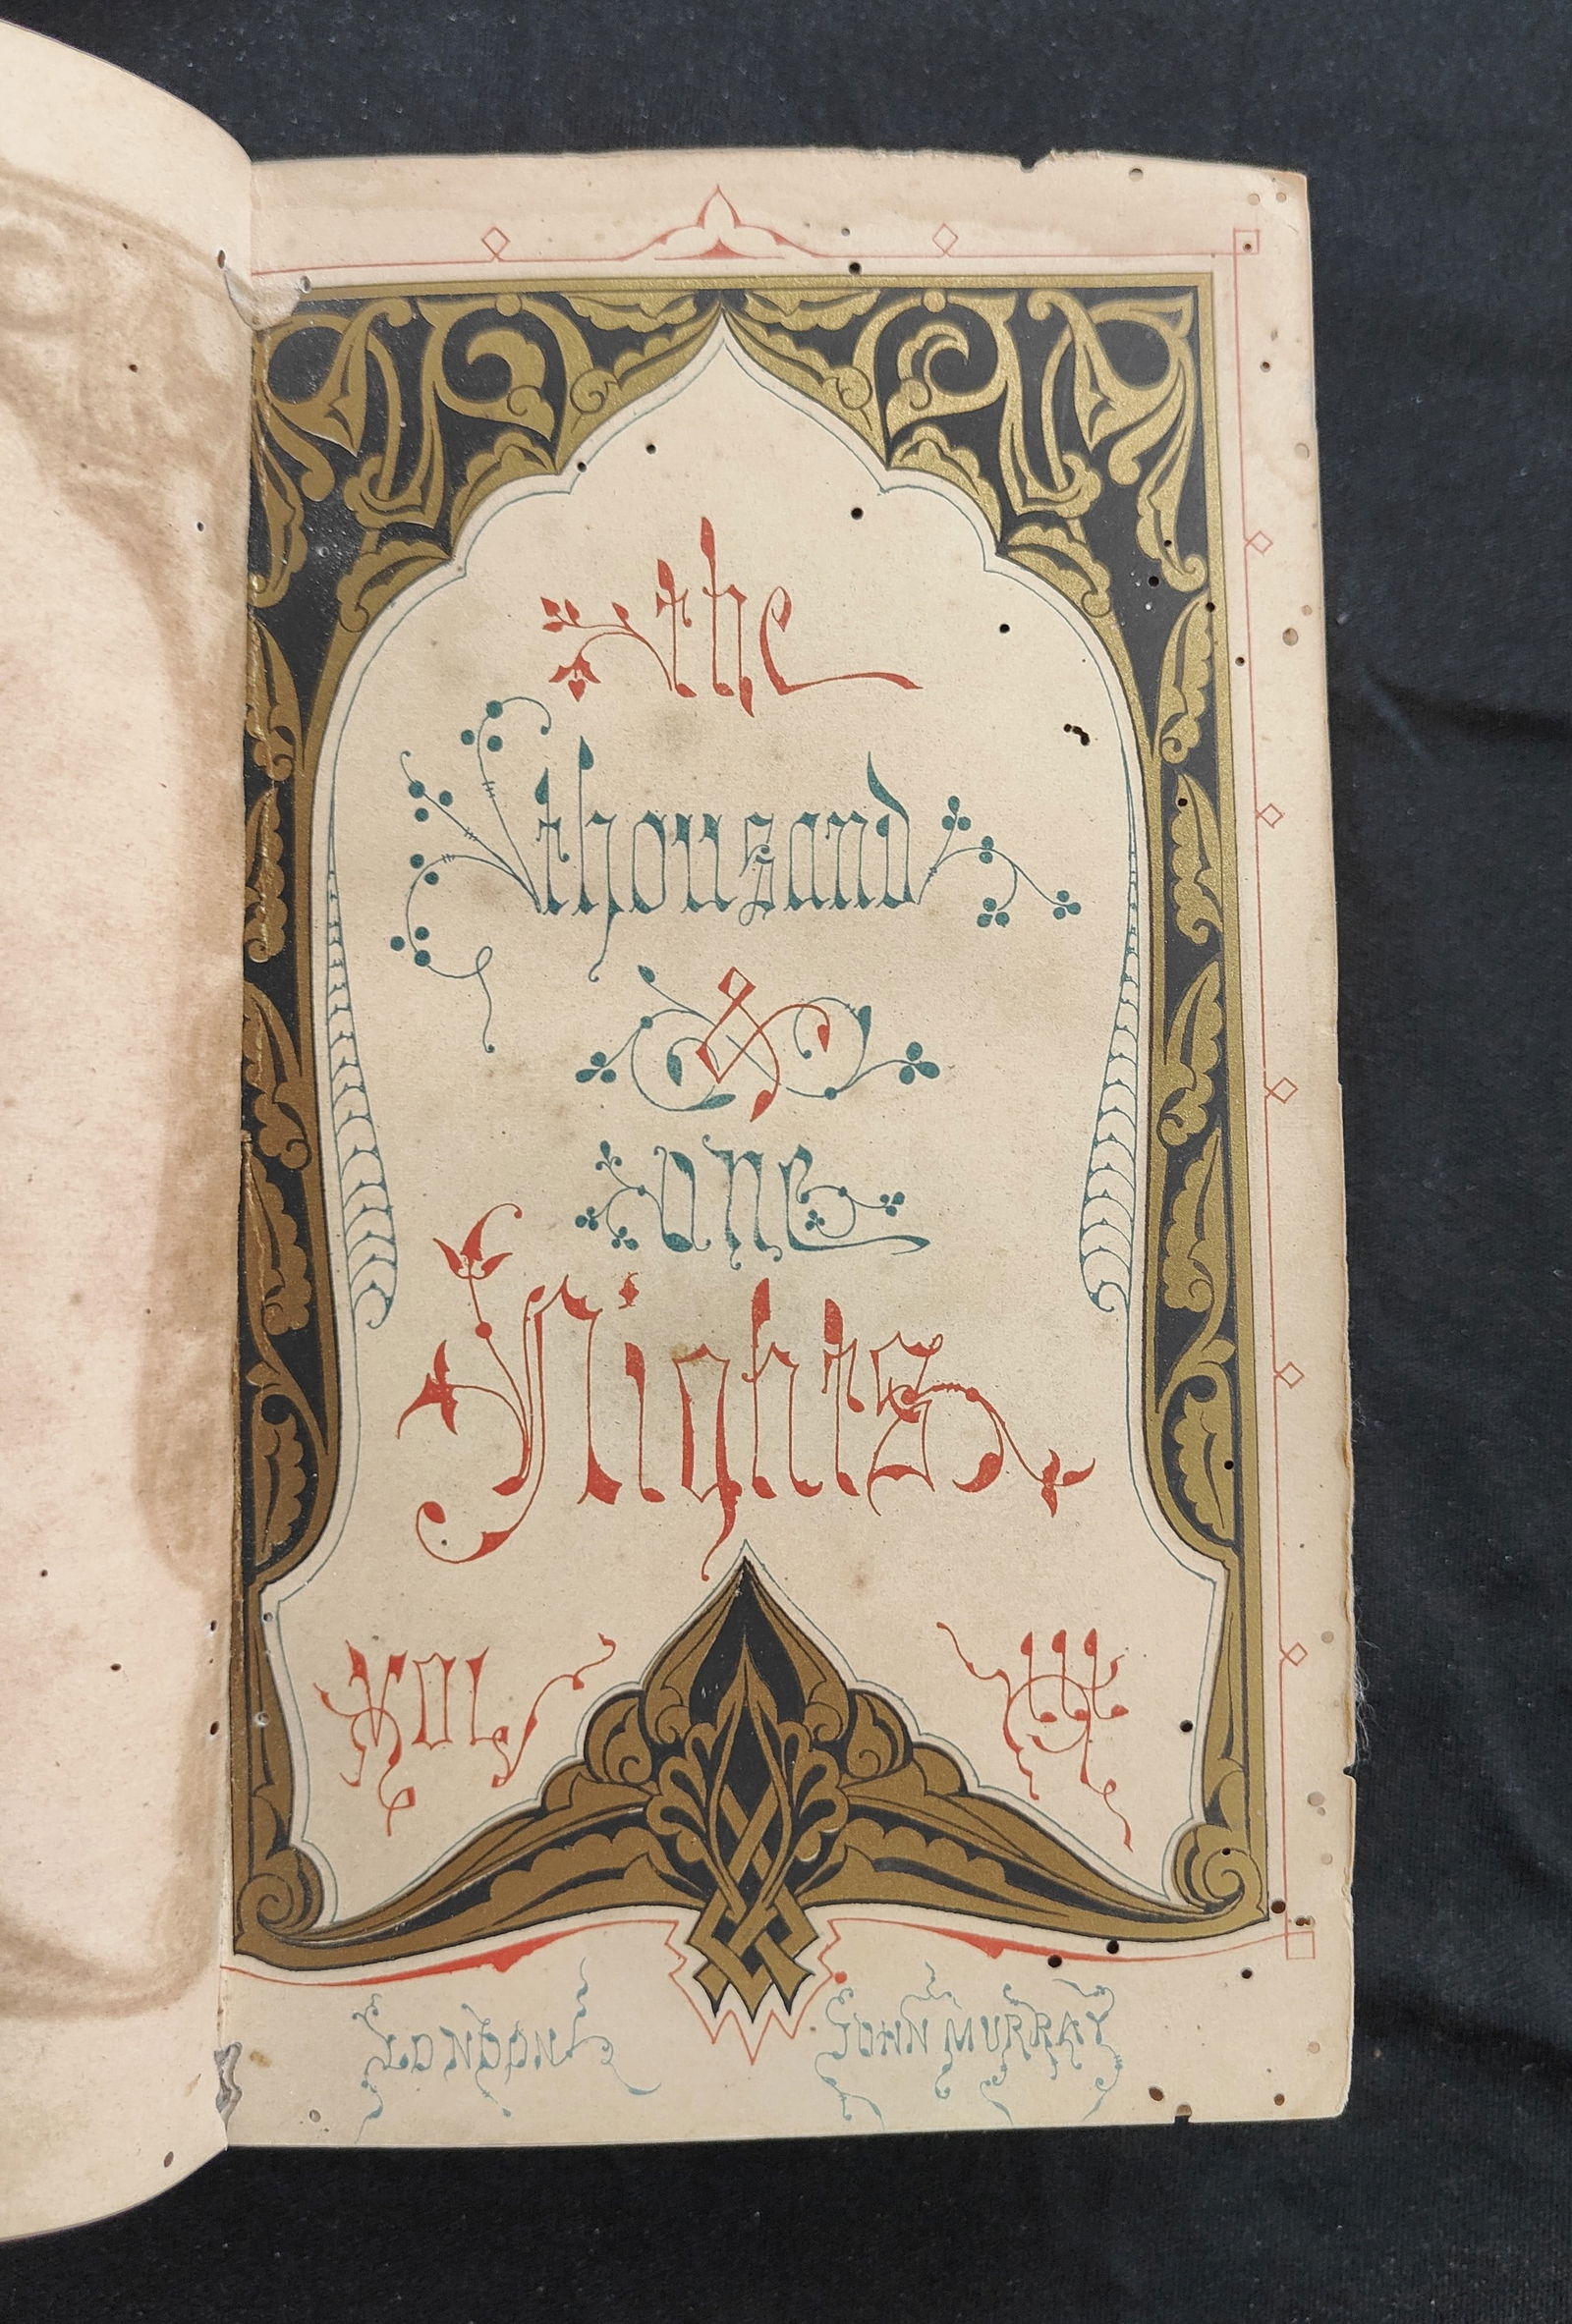 the
thousand
&
one
Nights
VOL III
LONDON JOHN MURRAY